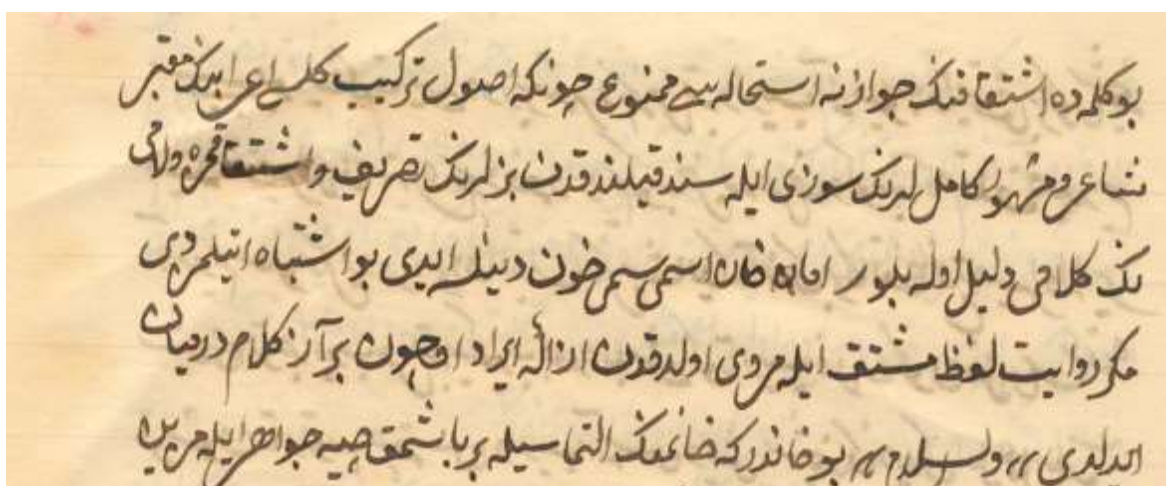 بو كلمه ده اشتقاقنك جوازنه استحاله سى ممنوع چونكه اصول تركيب كلى اعرابنك معتبر
شاعر ومشهور كامللرنك سوزى ايله سند قيلندقدن بزلرنك تصريف واشتقاقمزه
نك كلامى دليل اوله بلور اما خان اسمى سمرخون دينلسه ايدى بو اشتباه ايتلمزدى
مكر روايت لفظ مشتق ايله مروى اولدقدن ازالۀ ايراد اوچون بر آز كلام درميان
ايدلدى والسلام بو خاندر كه خانمنك التماسيله بر باشمق جواهر ايله مزين